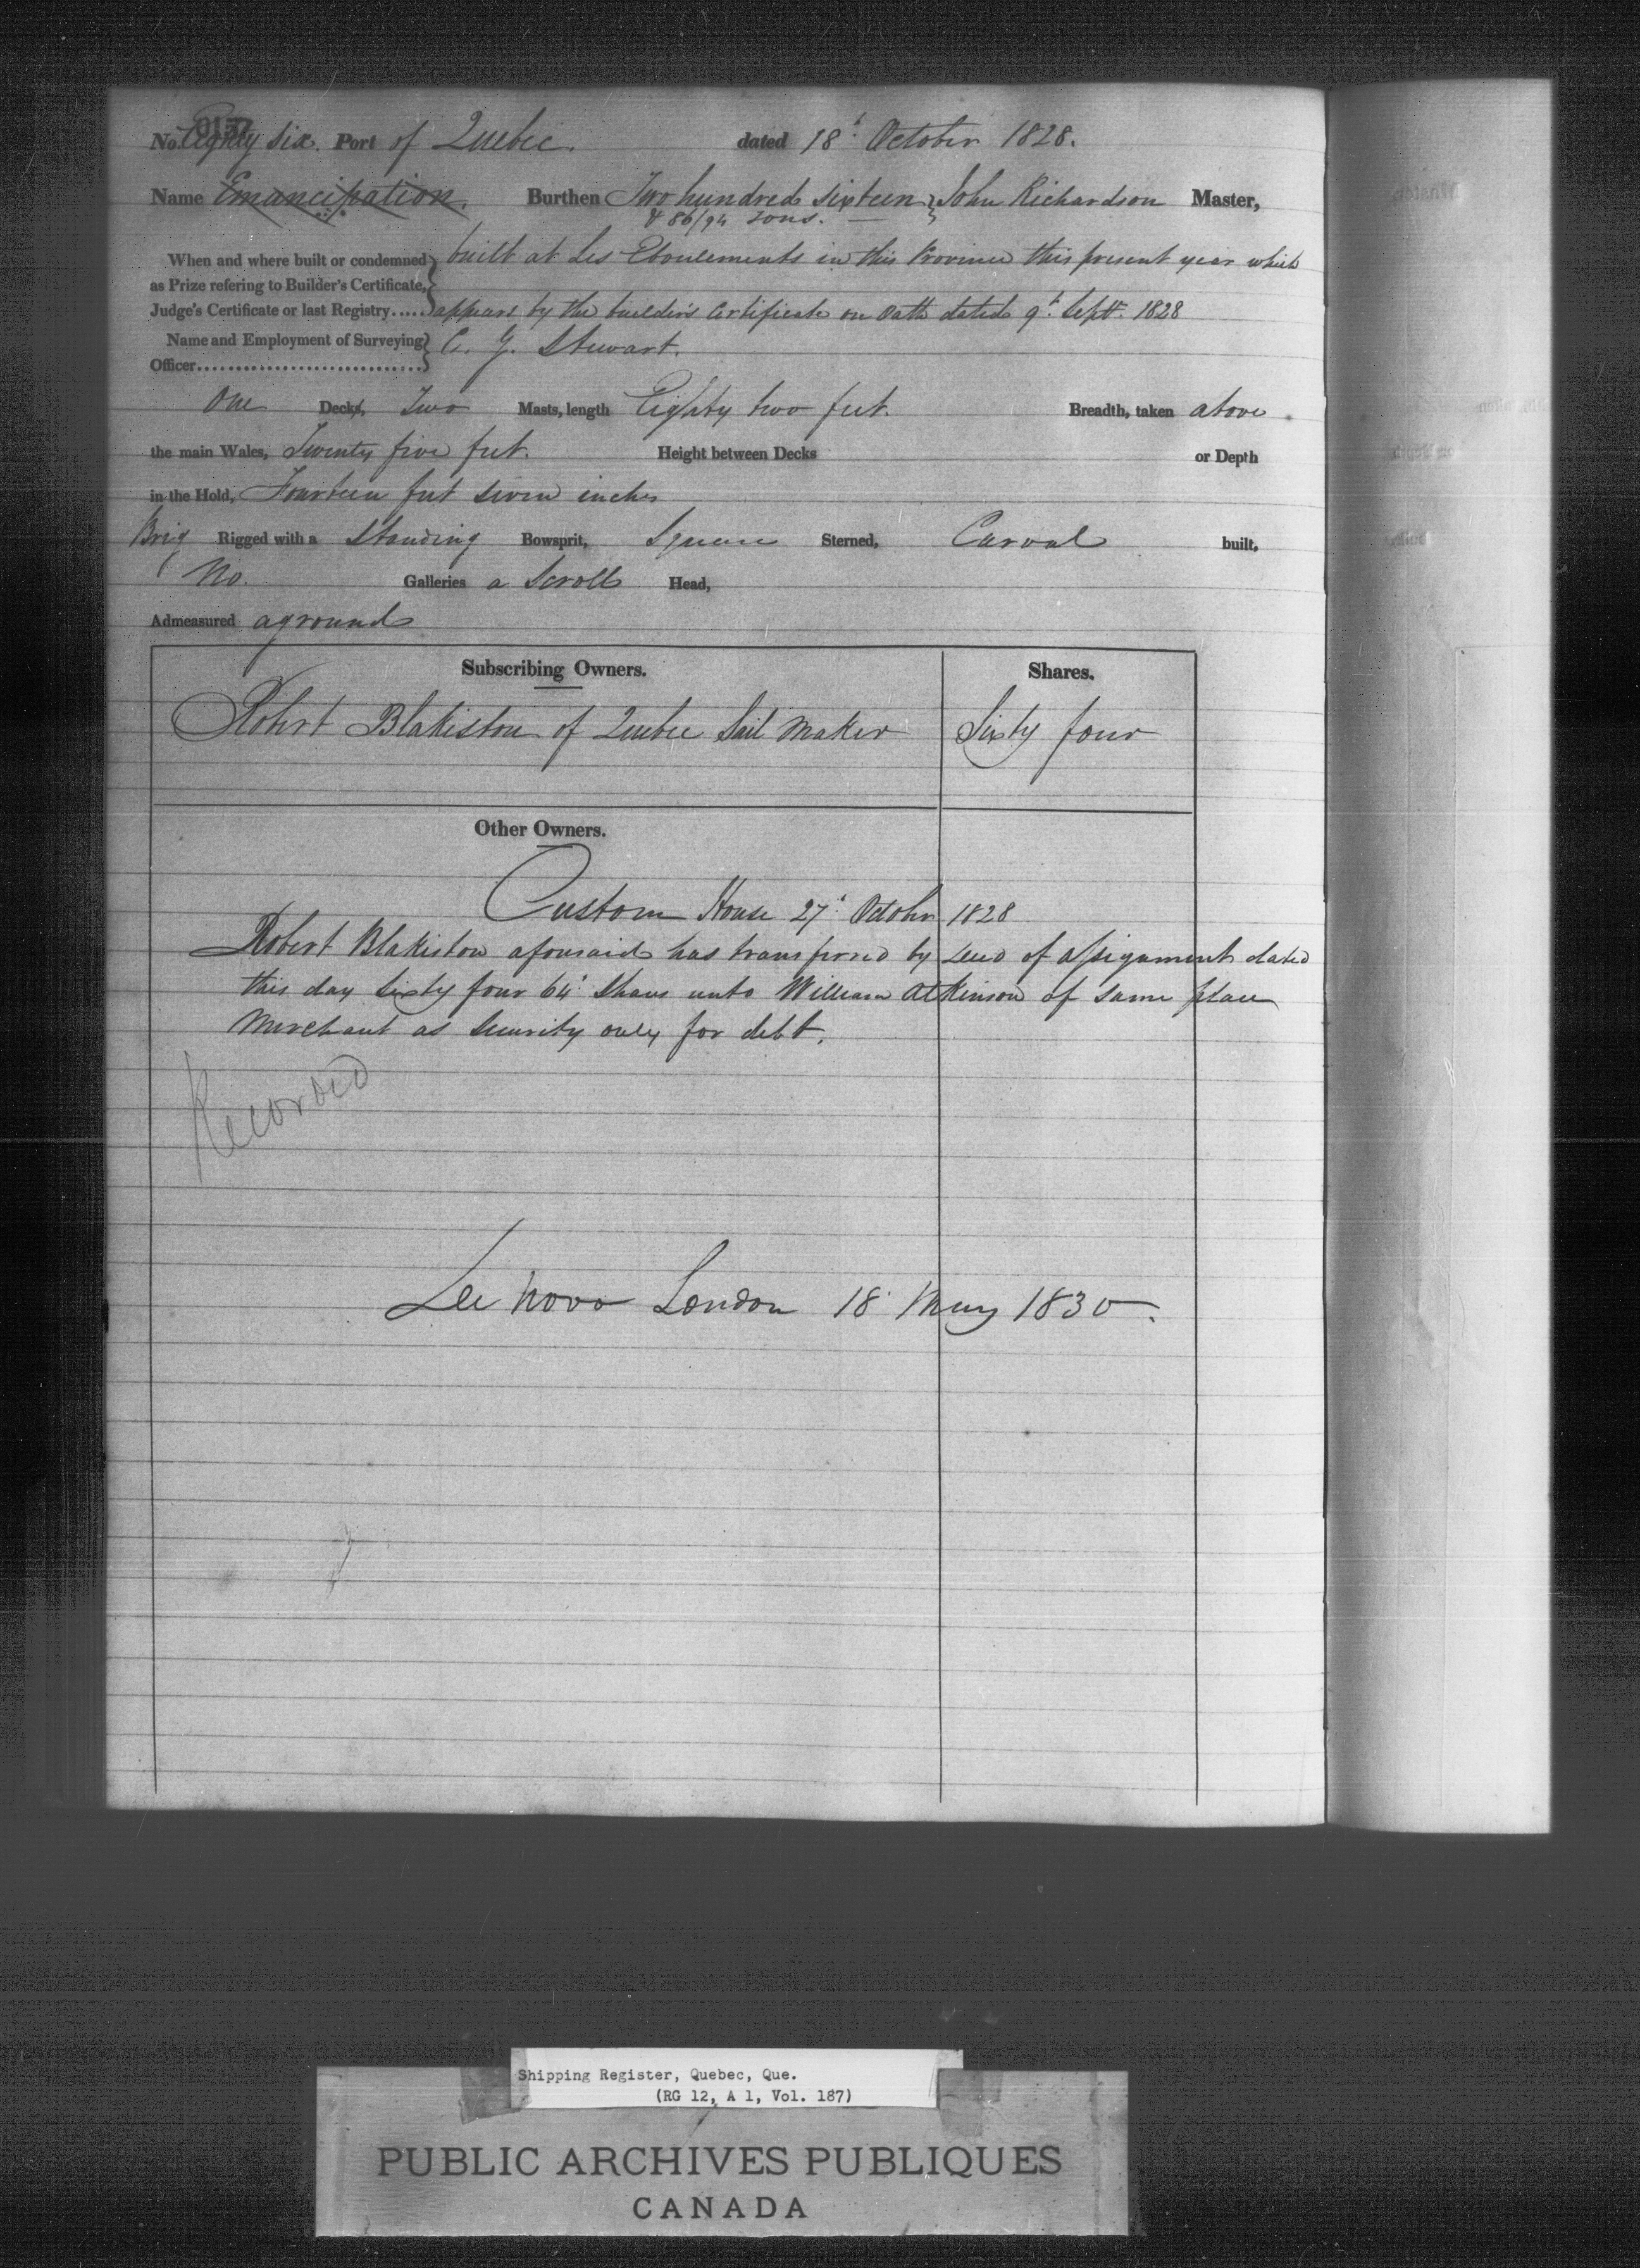 0137
No. Eighty six. Port of Quebec. dated 18t October 1828.
Name Emancipation. Burthen Two hundred sixteen } John Richardson Master,
& 86/94 Tons.
When and where built or condemned } built at Les Eboulements in this Province this present year which
as Prize refering to Builder's Certificate,
Judge's Certificate or last Registry..... appears by the builders Certificate on Oath dated 9t Sept. 1828
Name and Employment of Surveying } C. G. Stewart.
Officer..............................
One Decks, Two Masts, length Eighty two feet. Breadth, taken above
the main Wales, Twenty five feet. Height between Decks or Depth
in the Hold, Fourteen feet seven inches
Brig Rigged with a Standing Bowsprit, Square Sterned, Carvel built,
No. Galleries a Scroll Head,
Admeasured aground
Subscribing Owners. Shares.
Robert Blakiston of Quebec Sail Maker Sixty four
Other Owners.
Custom House 27t October 1828
Robert Blakiston aforesaid has transferred by Deed of assignment dated
this day Sixty four 64t Shares unto William Atkinson of same place
Merchant as Security only for debt.
Recorded
De Novo London 18 May 1830.
Shipping Register, Quebec, Que.
(RG 12, A 1, Vol. 187)
PUBLIC ARCHIVES PUBLIQUES
CANADA